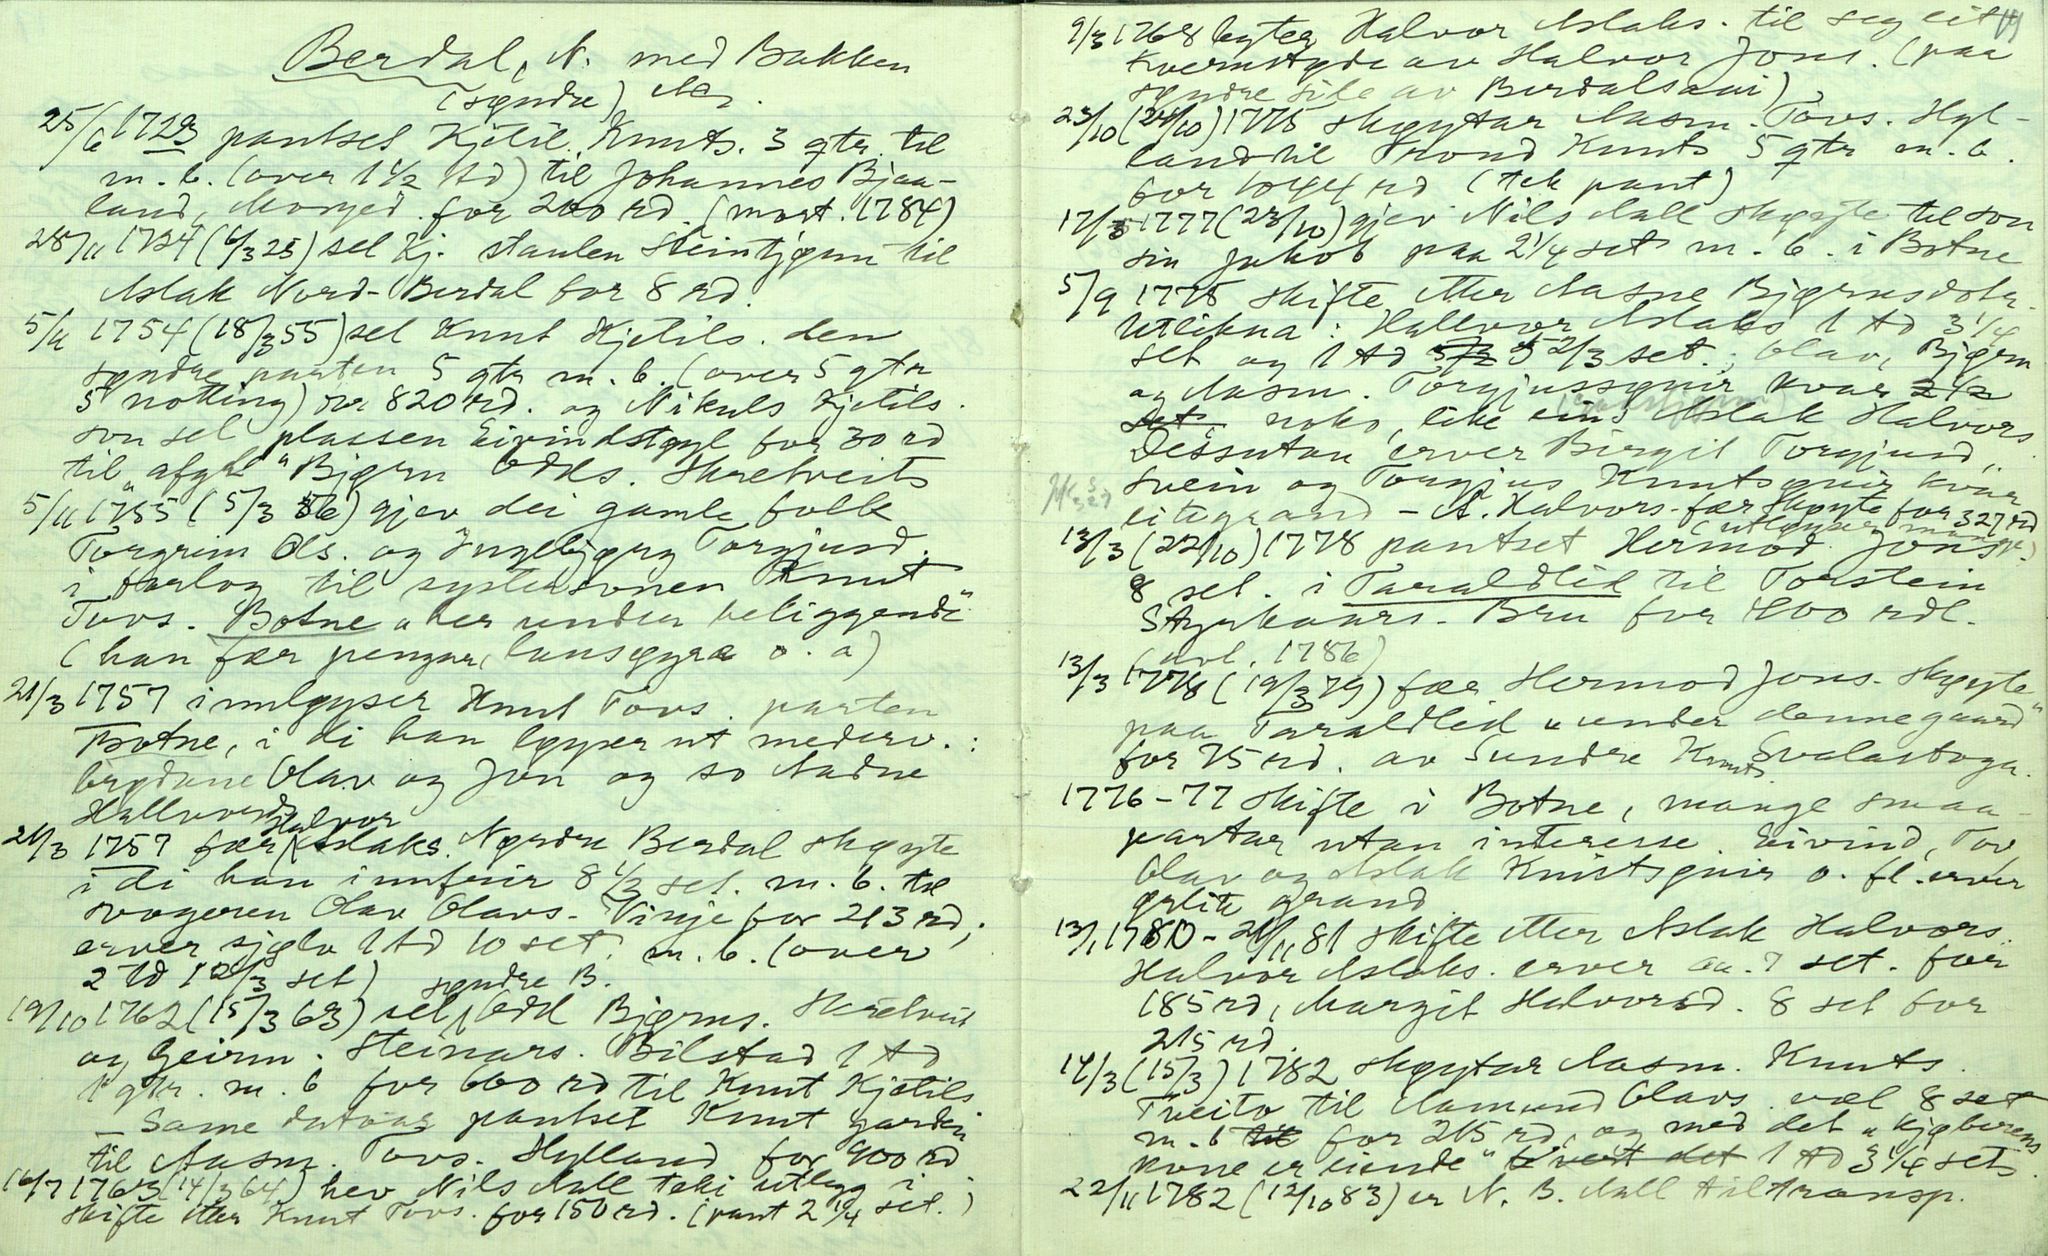 Berdal, N. med Bakken
(syndre)
25/6 1723 pantset Kjetil Knuts. 3 qtr. til
m. b. (over 1 1/2 td) til Johannes Bjaa-
land, Morgjed. for 200 rd. (mort. 1784)
28/11 1724 (6/3 25) sel Kj. staulen Steintjønn til
Aslak Nord-Berdal for 8 rd.
5/11 1754 (18/3 55) sel Knut Kjetils. den
syndre parten 5 qtr m. b. (over 5 qtr
5 notting) for 820 rd. og Nikuls Kjetils.
son sel plassen Eivindstøyl for 30 rd
til "afgl" Bjørn Odds. Skretveit
5/11 1755 (5/3 56) gjev dei gamle folk
Torgrim Ols. og Ingebjørg Torgjusd.
i varlog til systersonen Knut
Tovs. Botne "her under beliggende"
(han fær pengar, lausøyre o. a)
21/3 1757 innløyser Knut Tovs. parten
Botne, i di han løyser ut medarv.:
brødrane Olav og Jon og so Aadne
Hallvords
Halvor
21/3 1757 fær Aslaks. Nørdre Berdal skøyte
i di han innfrir 8 1/3 set. m. b. til
svogeren Olav Olavs. Vinje for 213 rd,
erver sjølv 1 td 10 set. m. b. (over
2 td 1 2/3 set) syndre B.
19/10 1762 (15/3 63) sel Odd Bjørns. Skretveit
og Geirm. Steinars. Bilstad 1 td
1 qtr. m. b for 660 rd til Knut Kjetils
- Same datoar pantset Knut garden
til Aasm. Tovs. Hylland for 900 rd
16/7 1763 (14/3 64) hev Nils Aall teki utlegg i
skifte etter Knut Tovs. for 150 rd. (pant 2 1/4 set.)
9/3 1768 byter Halvor Aslaks. til seg eit
kvernstøde av Halvor Jons. (paa
syndre sile av Berdalsaai)
23/10 (24/10) 1775 skøytar Aasm. Tovs. Hyl-
land til Trond Knuts 5 qtr m. b.
for 1044 rd (tek pant)
17/3 1777 (23/10) gjev Nils Aall skøyte til son
sin Jakob paa 2 1/4 set m. b. i Botne
5/9 1775 skifte etter Aasne Bjørnsdotr.
Utlikna: Hallvor Aslaks 1 td 3 1/4
set og 1 td 5 2/3 set.; Olav, Bjørn
og Aasm. Torgjussønir kvar 2 1/2
set, noko, like eins Aslak Halvors.
Dessutan erver Birgit Torgjusd.,
Svein og Torgjus Knutsønir kvar
litegrand - A. Halvors. fær skøyte for 327 rd
(utløyser mange)
13/3 (22/10) 1778 pantset Hermod Jons.
8 set. i Taraldlid til Torstein
Styrkaars. Bru for 400 rdl.
(avl. 1786)
13/3 1778 (19/3 79) fær Hermod Jons. skøyte
paa Taraldlid "under denne gaard"
for 75 rd. av Sundre Knuts. Svalastoga.
1776-77 skifte i Botne, mange smaa-
partar utan interesse. Eivind, Tov,
Olav og Aslak Knutsønir o. fl. erver
ørlite grand
13/1 1780 - 21/11 81 skifte etter Aslak Halvors.
Halvor Aslaks. erver aa. 7 set. for
185 rd, Margit Halvorsd. 8 set for
215 rd.
14/3 (15/3) 1782 skøytar Aasm. Knuts.
Tveito til Aamund Olavs. vel 8 set
m. b til for 215 rd, og med det "kjøberens
kone er eiende" 1 td 3 1/4 set.
22/11 1782 (12/10 83) er N. B. Aall til transp.